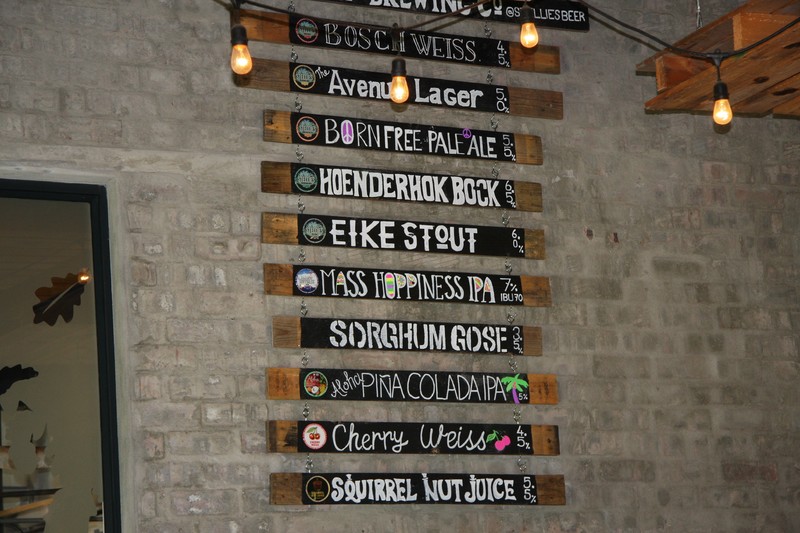 BREWING CO @STELLIESBEER
BOSCH WEISS. 4.5%
The Avenue Lager 5.0%
BORN FREE PALE ALE 5.5%
HOENDERHOK BOCK 6.5%
EIKE STOUT 6.0%
MASS HOPPINESS IPA 7% IBU 70
SORGHUM GOSE
Aloha PIÑA COLADA IPA 5%
Cherry Weiss 4.5%
SQUIRREL NUT JUICE 5.5%